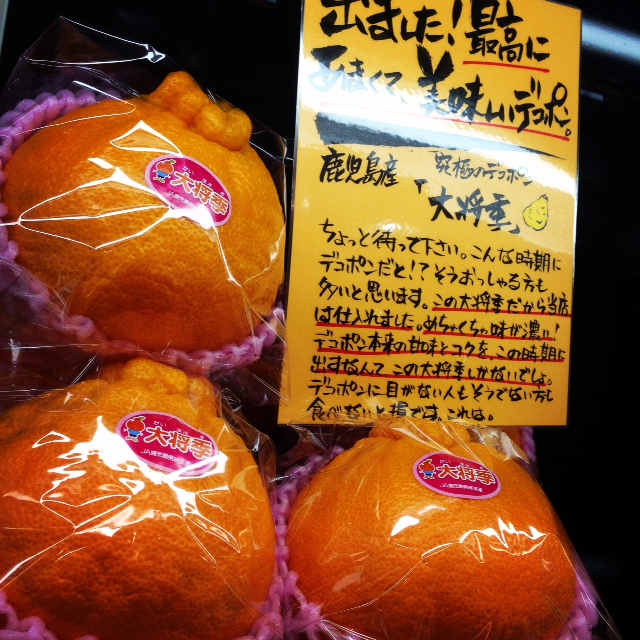 出ました!最高に
あまくて美味しいデコポン。
鹿児島産 究極のデコポン
「大将季」
ちょっと待って下さい。こんな時期に
デコポンだと!?そうおっしゃる方も
多いと思います。この大将季だから当店
は仕入れました。めちゃくちゃ味が濃い!
デコポン本来の甘味とコクを、この時期に
出すなんてこの大将季しかないでしょ。
デコポンに目がない人もそうでない方も
食べないと損です、これは。
大将季
大将季
大将季